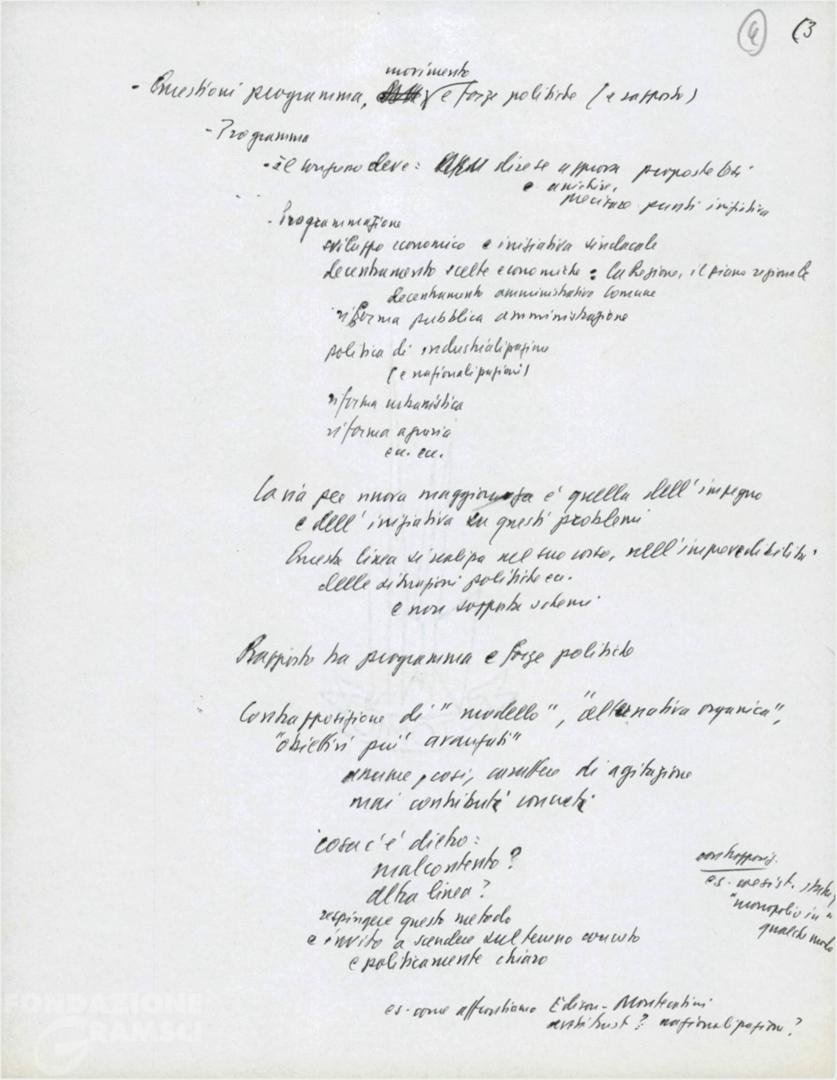 4 (3
movimento
- Questioni programma, e forze politiche (e rapporto)
- Programma
- il congresso deve: dire se approva proposte tesi
e arricchire,
precisare punti iniziativa
- Programmazione
sviluppo economico e iniziativa sindacale
decentramento scelte economiche: la Regione, il piano regionale
decentramento amministrativo Comune
riforma pubblica amministrazione
politica di industrializzazione
(e nazionalizzazioni)
riforma urbanistica
riforma agraria
ecc. ecc.
La via per nuova maggioranza è quella dell'impegno
e dell'iniziativa su questi problemi
Questa linea si realizza nel suo corso, nell'imprevedibilità
delle situazioni politiche ecc.
e non sopporta schemi
Rapporto tra programma e forze politiche
Contrapposizione di "modello", "alternativa organica",
"obiettivi più avanzati"
assume, così, carattere di agitazione
mai contributi concreti
cosa c'è dietro:
malcontento?
altra linea?
respingere questo metodo
e invito a scendere sul terreno concreto
e politicamente chiaro
contrapposiz.
es. coesist.
"monopolio in"
qualche modo
es. come affrontiamo Edison-Montecatini
antitrust? nazionalizzazione?
FONDAZIONE
GRAMSCI